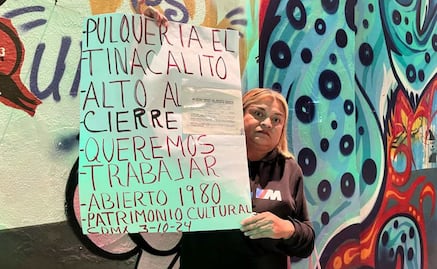 -PULQUERIA EL
TINACALITO
-ALTO AL
CIERRE
-QUEREMOS
TRABAJAR
-ABIERTO 1980
-PATRIMONIO CULTURAL
CDMX 3-10-24